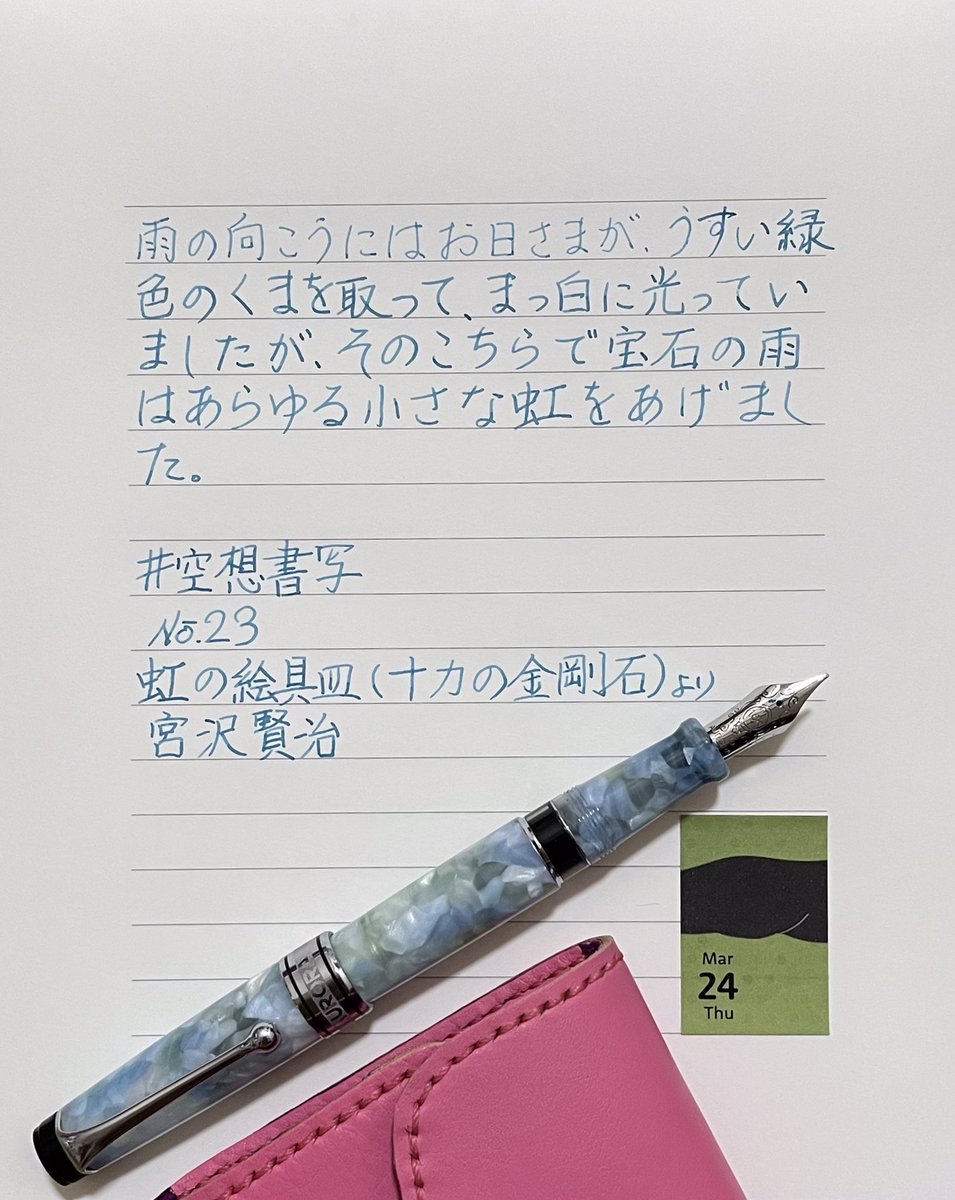 雨の向こうにはお日さまが、うすい緑
色のくまを取って、まっ白に光ってい
ましたが、そのこちらで宝石の雨
はあらゆる小さな虹をあげまし
た。
#空想書写
No.23
虹の絵具皿(十力の金剛石)より
宮沢賢治
Mar
24
Thu